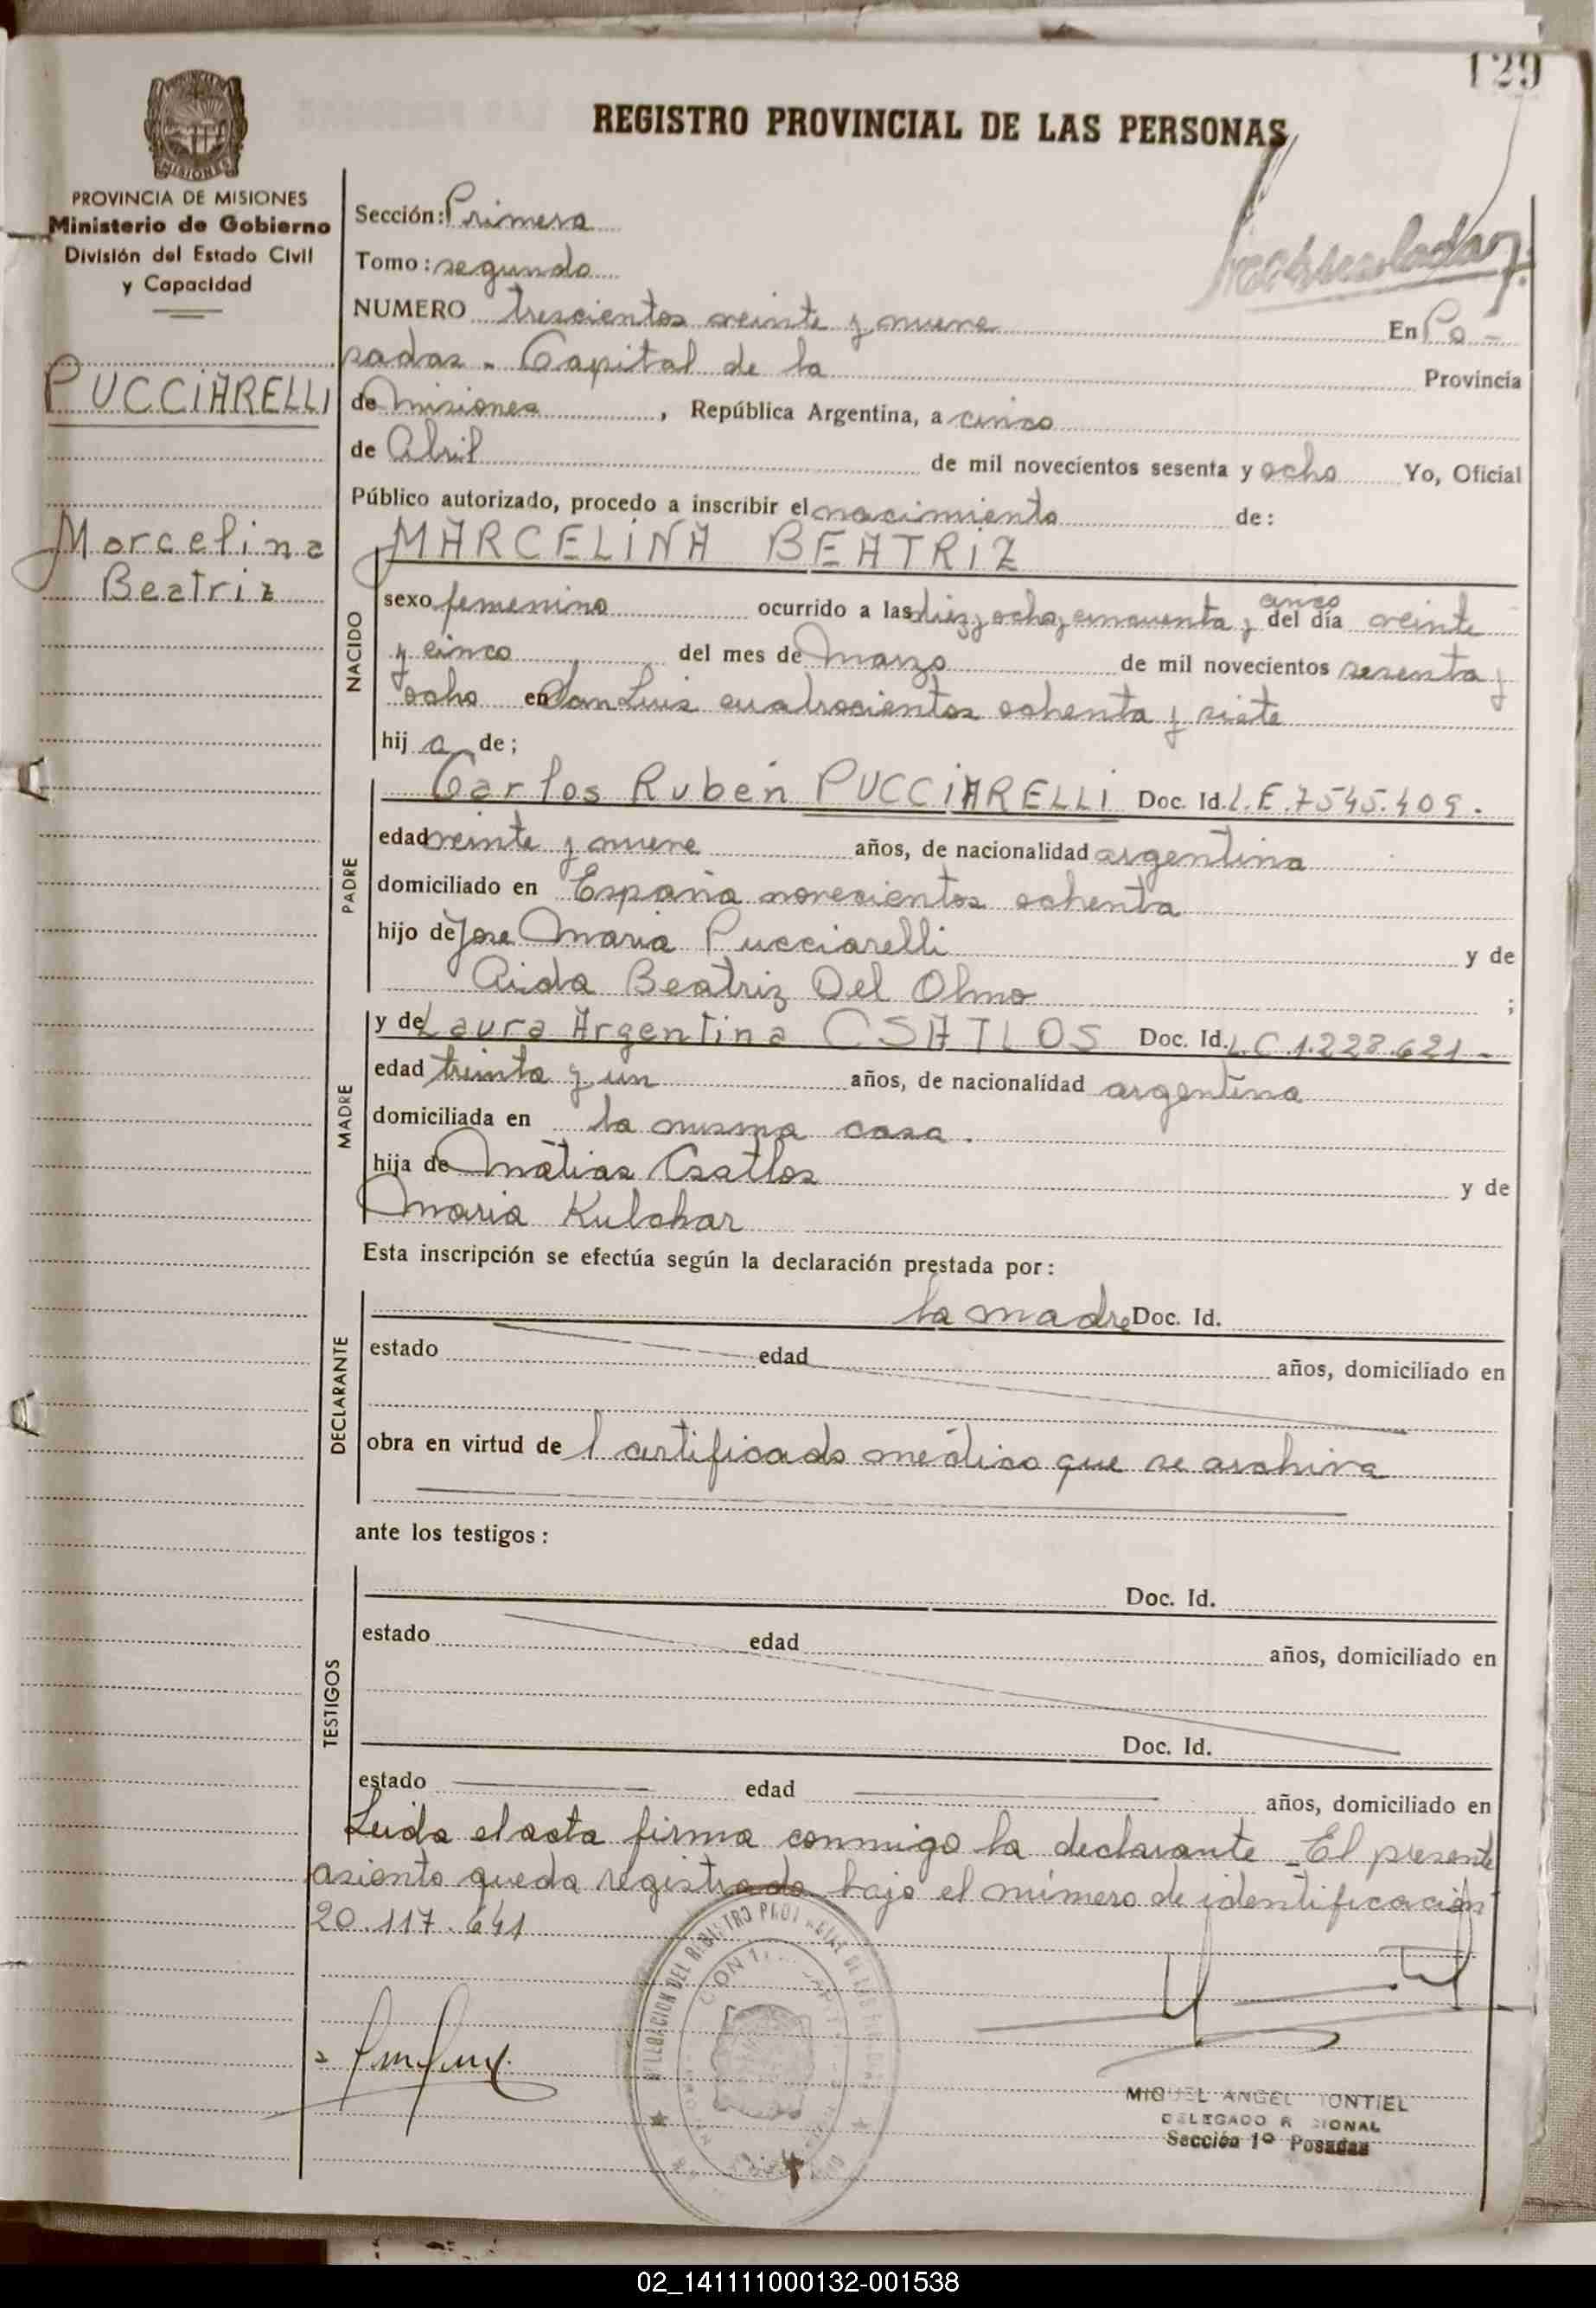 129
REGISTRO PROVINCIAL DE LAS PERSONAS
PROVINCIA DE MISIONES
Ministerio de Gobierno
División del Estado Civil
y Capacidad
PUCCIARELLI
Marcelina
Beatriz
Sección: Primera
Tomo: segundo
NUMERO trescientos veinte y nueve En Po-
sadas - Capital de la Provincia
de Misiones, República Argentina, a cinco
de Abril de mil novecientos sesenta y ocho Yo, Oficial
Público autorizado, procedo a inscribir el nacimiento de:
MARCELINA BEATRIZ
NACIDO
sexo femenino ocurrido a las diez y ocho y cincuenta y cinco del día veinte
y cinco del mes de Marzo de mil novecientos sesenta y
ocho en San Luis cuatrocientos ochenta y siete
hij a de;
PADRE
Carlos Rubén PUCCIARELLI Doc. Id. L.E. 7.545.409.
edad veinte y nueve años, de nacionalidad argentina
domiciliado en España novecientos ochenta
hijo de Jose Maria Pucciarelli y de
Aida Beatriz Del Olmo ;
MADRE
y de Laura Argentina CSATLOS Doc. Id. L.C. 1.228.621-
edad treinta y un años, de nacionalidad argentina
domiciliada en la misma casa.
hija de Matias Csatlos y de
Maria Kulchar
Esta inscripción se efectúa según la declaración prestada por:
DECLARANTE
la madre Doc. Id.
estado edad años, domiciliado en
obra en virtud de l certificado médico que se archiva
ante los testigos:
TESTIGOS
Doc. Id.
estado edad años, domiciliado en
Doc. Id.
estado edad años, domiciliado en
Leida el acta firma conmigo la declarante - El presente
asiento queda registrado bajo el número de identificación
20.117.641
MIGUEL ANGEL MONTIEL
DELEGADO REGIONAL
Sección 1º Posadas
02_141111000132-001538